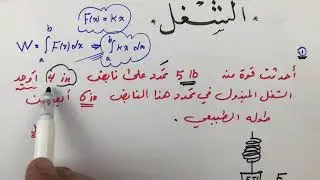 *الشغل*
F(x) = kx
W = ∫ₐᵇ F(x) dx ⇒ ∫ₐᵇ kx dx
①
أحدثت قوة من 5 lb تمدد على نابض 4 in أوجد
الشغل المبذول في تمدد هذا النابض 6 in
طوله الطبيعي
5